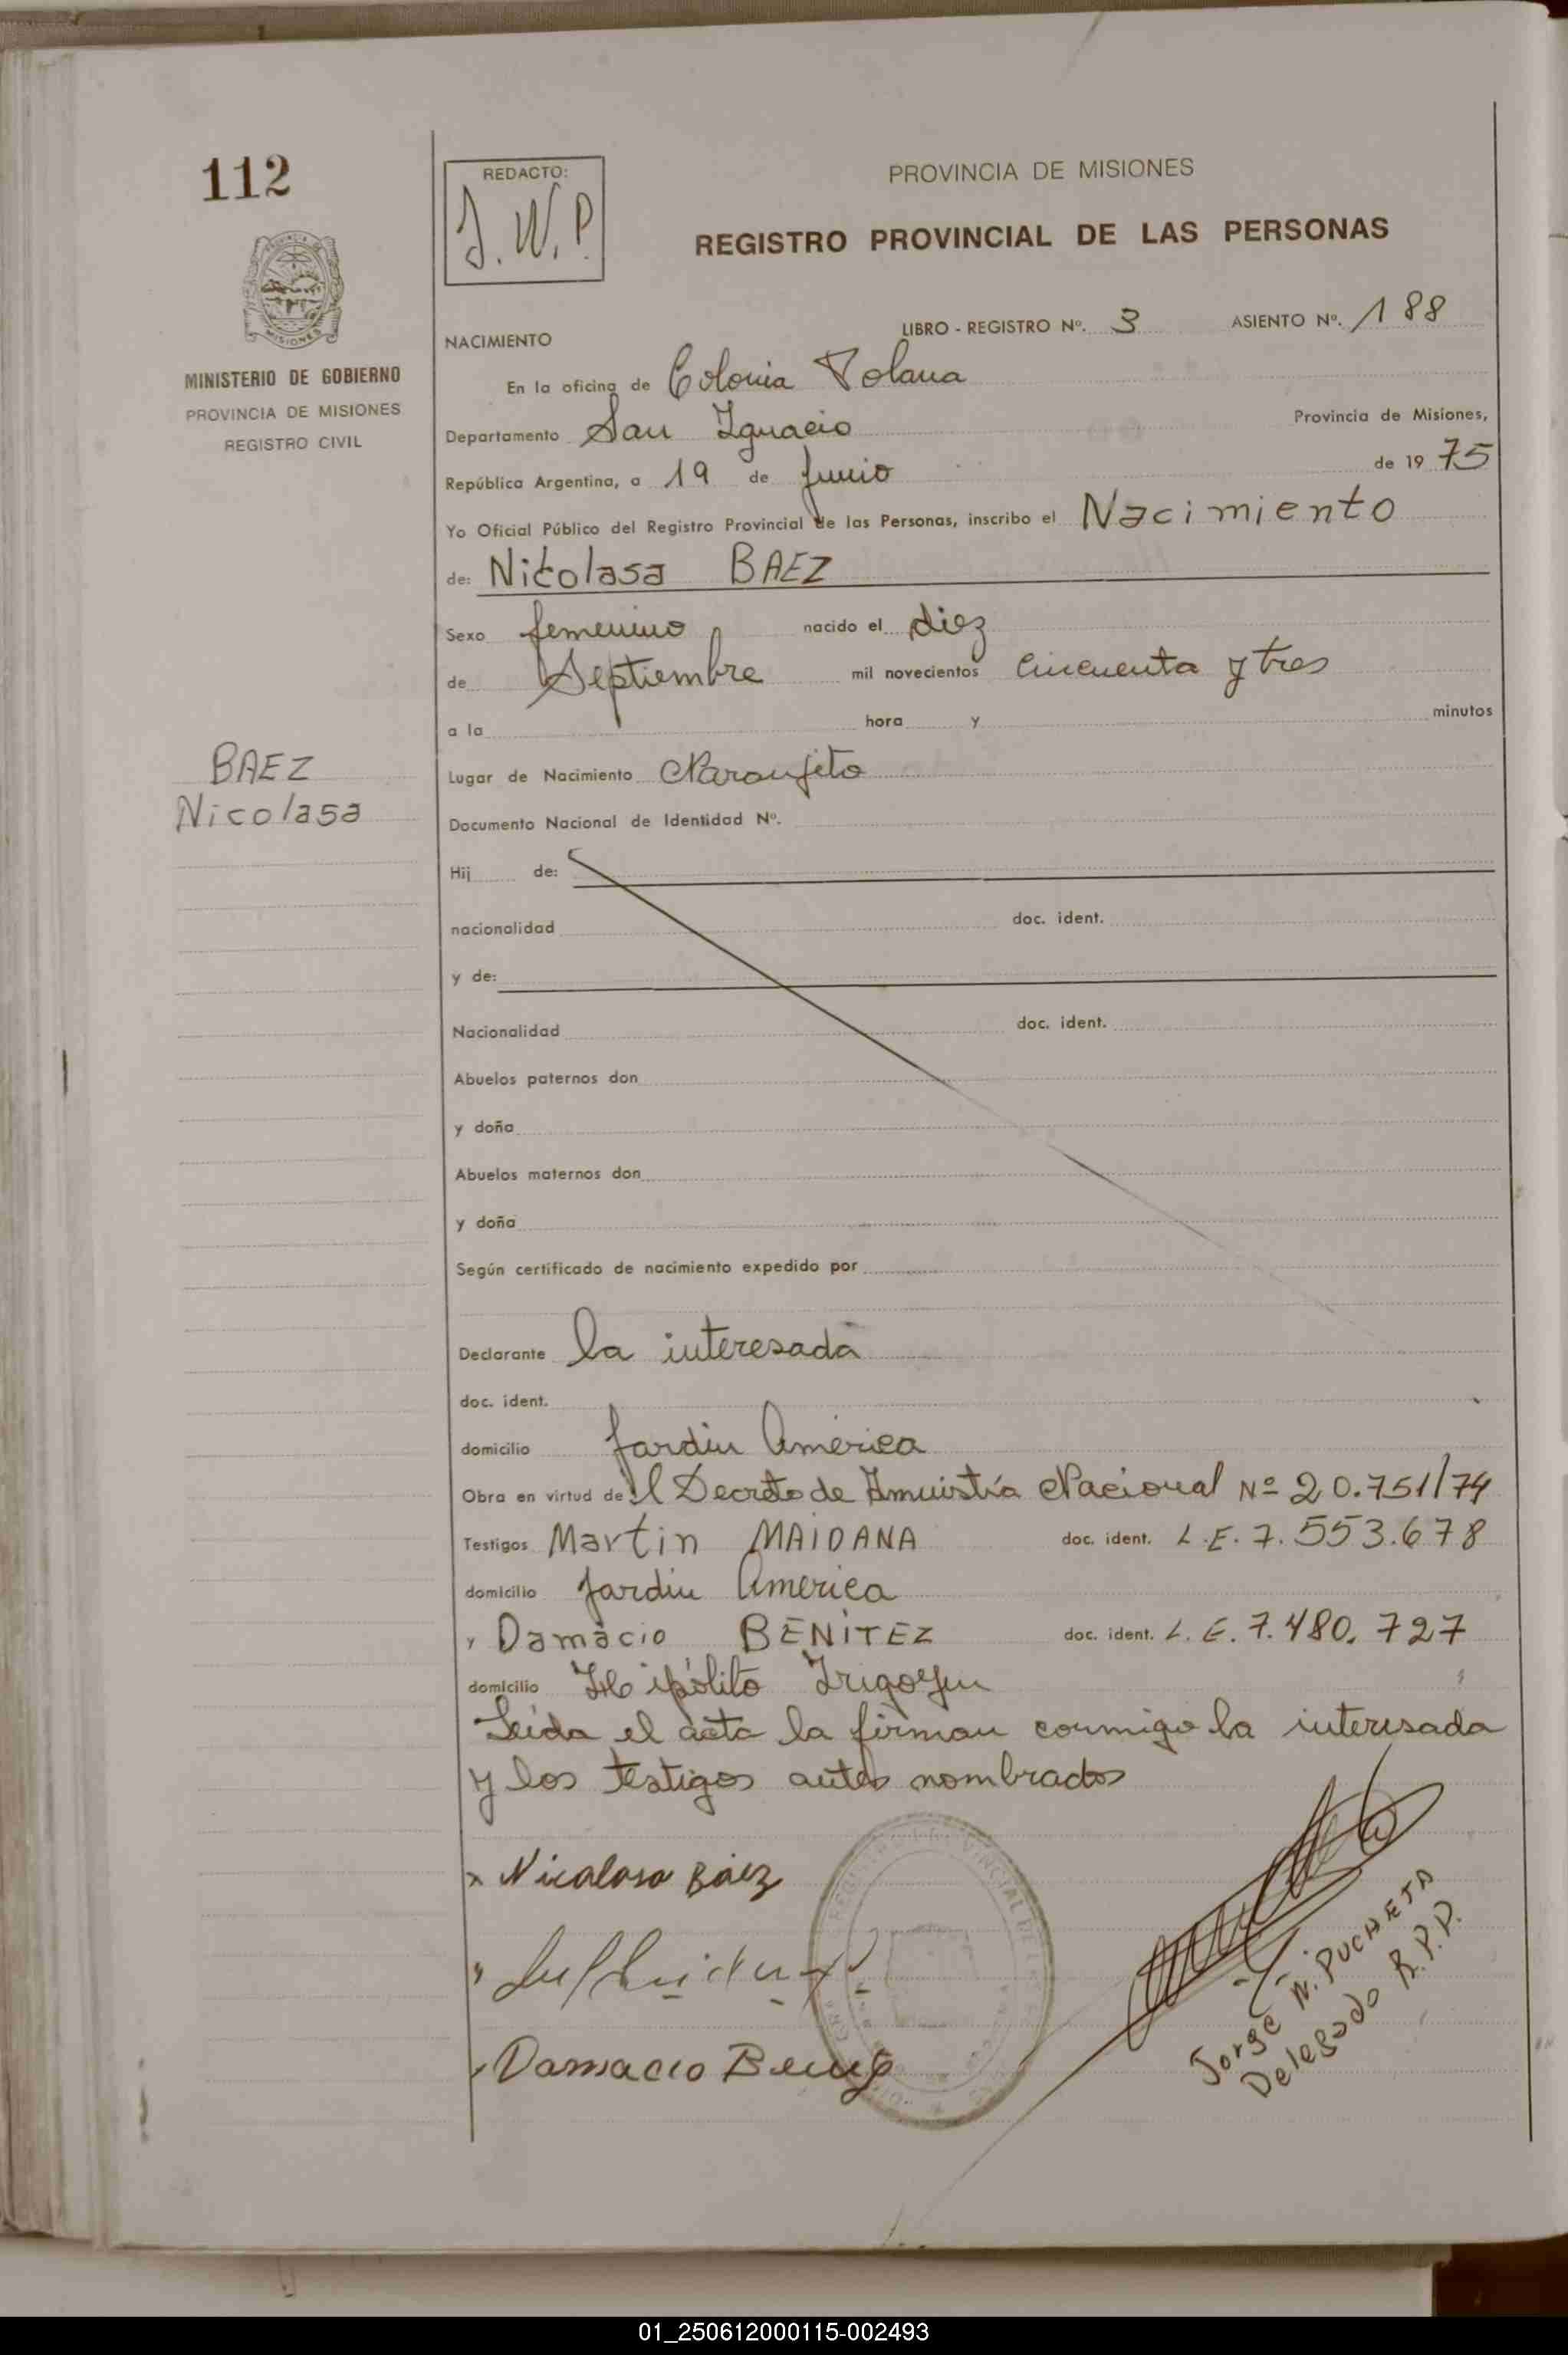 112
REDACTO:
J.W.P.
PROVINCIA DE MISIONES
REGISTRO PROVINCIAL DE LAS PERSONAS
MINISTERIO DE GOBIERNO
PROVINCIA DE MISIONES
REGISTRO CIVIL
NACIMIENTO
LIBRO - REGISTRO Nº. 3 ASIENTO Nº. 188
En la oficina de Colonia Polana
Departamento San Ignacio Provincia de Misiones,
República Argentina, a 19 de Junio de 19 75
Yo Oficial Público del Registro Provincial de las Personas, inscribo el Nacimiento
de: Nicolasa BAEZ
Sexo femenino nacido el diez
de Septiembre mil novecientos cincuenta y tres
a la hora y minutos
BAEZ
Nicolasa
Lugar de Nacimiento Naranjito
Documento Nacional de Identidad Nº.
Hij de:
nacionalidad doc. ident.
y de:
Nacionalidad doc. ident.
Abuelos paternos don
y doña
Abuelos maternos don
y doña
Según certificado de nacimiento expedido por
Declarante la interesada
doc. ident.
domicilio Jardin América
Obra en virtud del Decreto de Amnistía Nacional Nº 20.751/74
Testigos Martin MAIDANA doc. ident. L.E. 7.553.678
domicilio Jardin América
y Damácio BENÍTEZ doc. ident. L.E. 7.480.727
domicilio Hipólito Irigoyen
Leída el acta la firman conmigo la interesada
y los testigos antes nombrados
x Nicalasa Báez
Damacio Benig
Jorge N. PUCHETA
Delegado R.P.P.
01_250612000115-002493